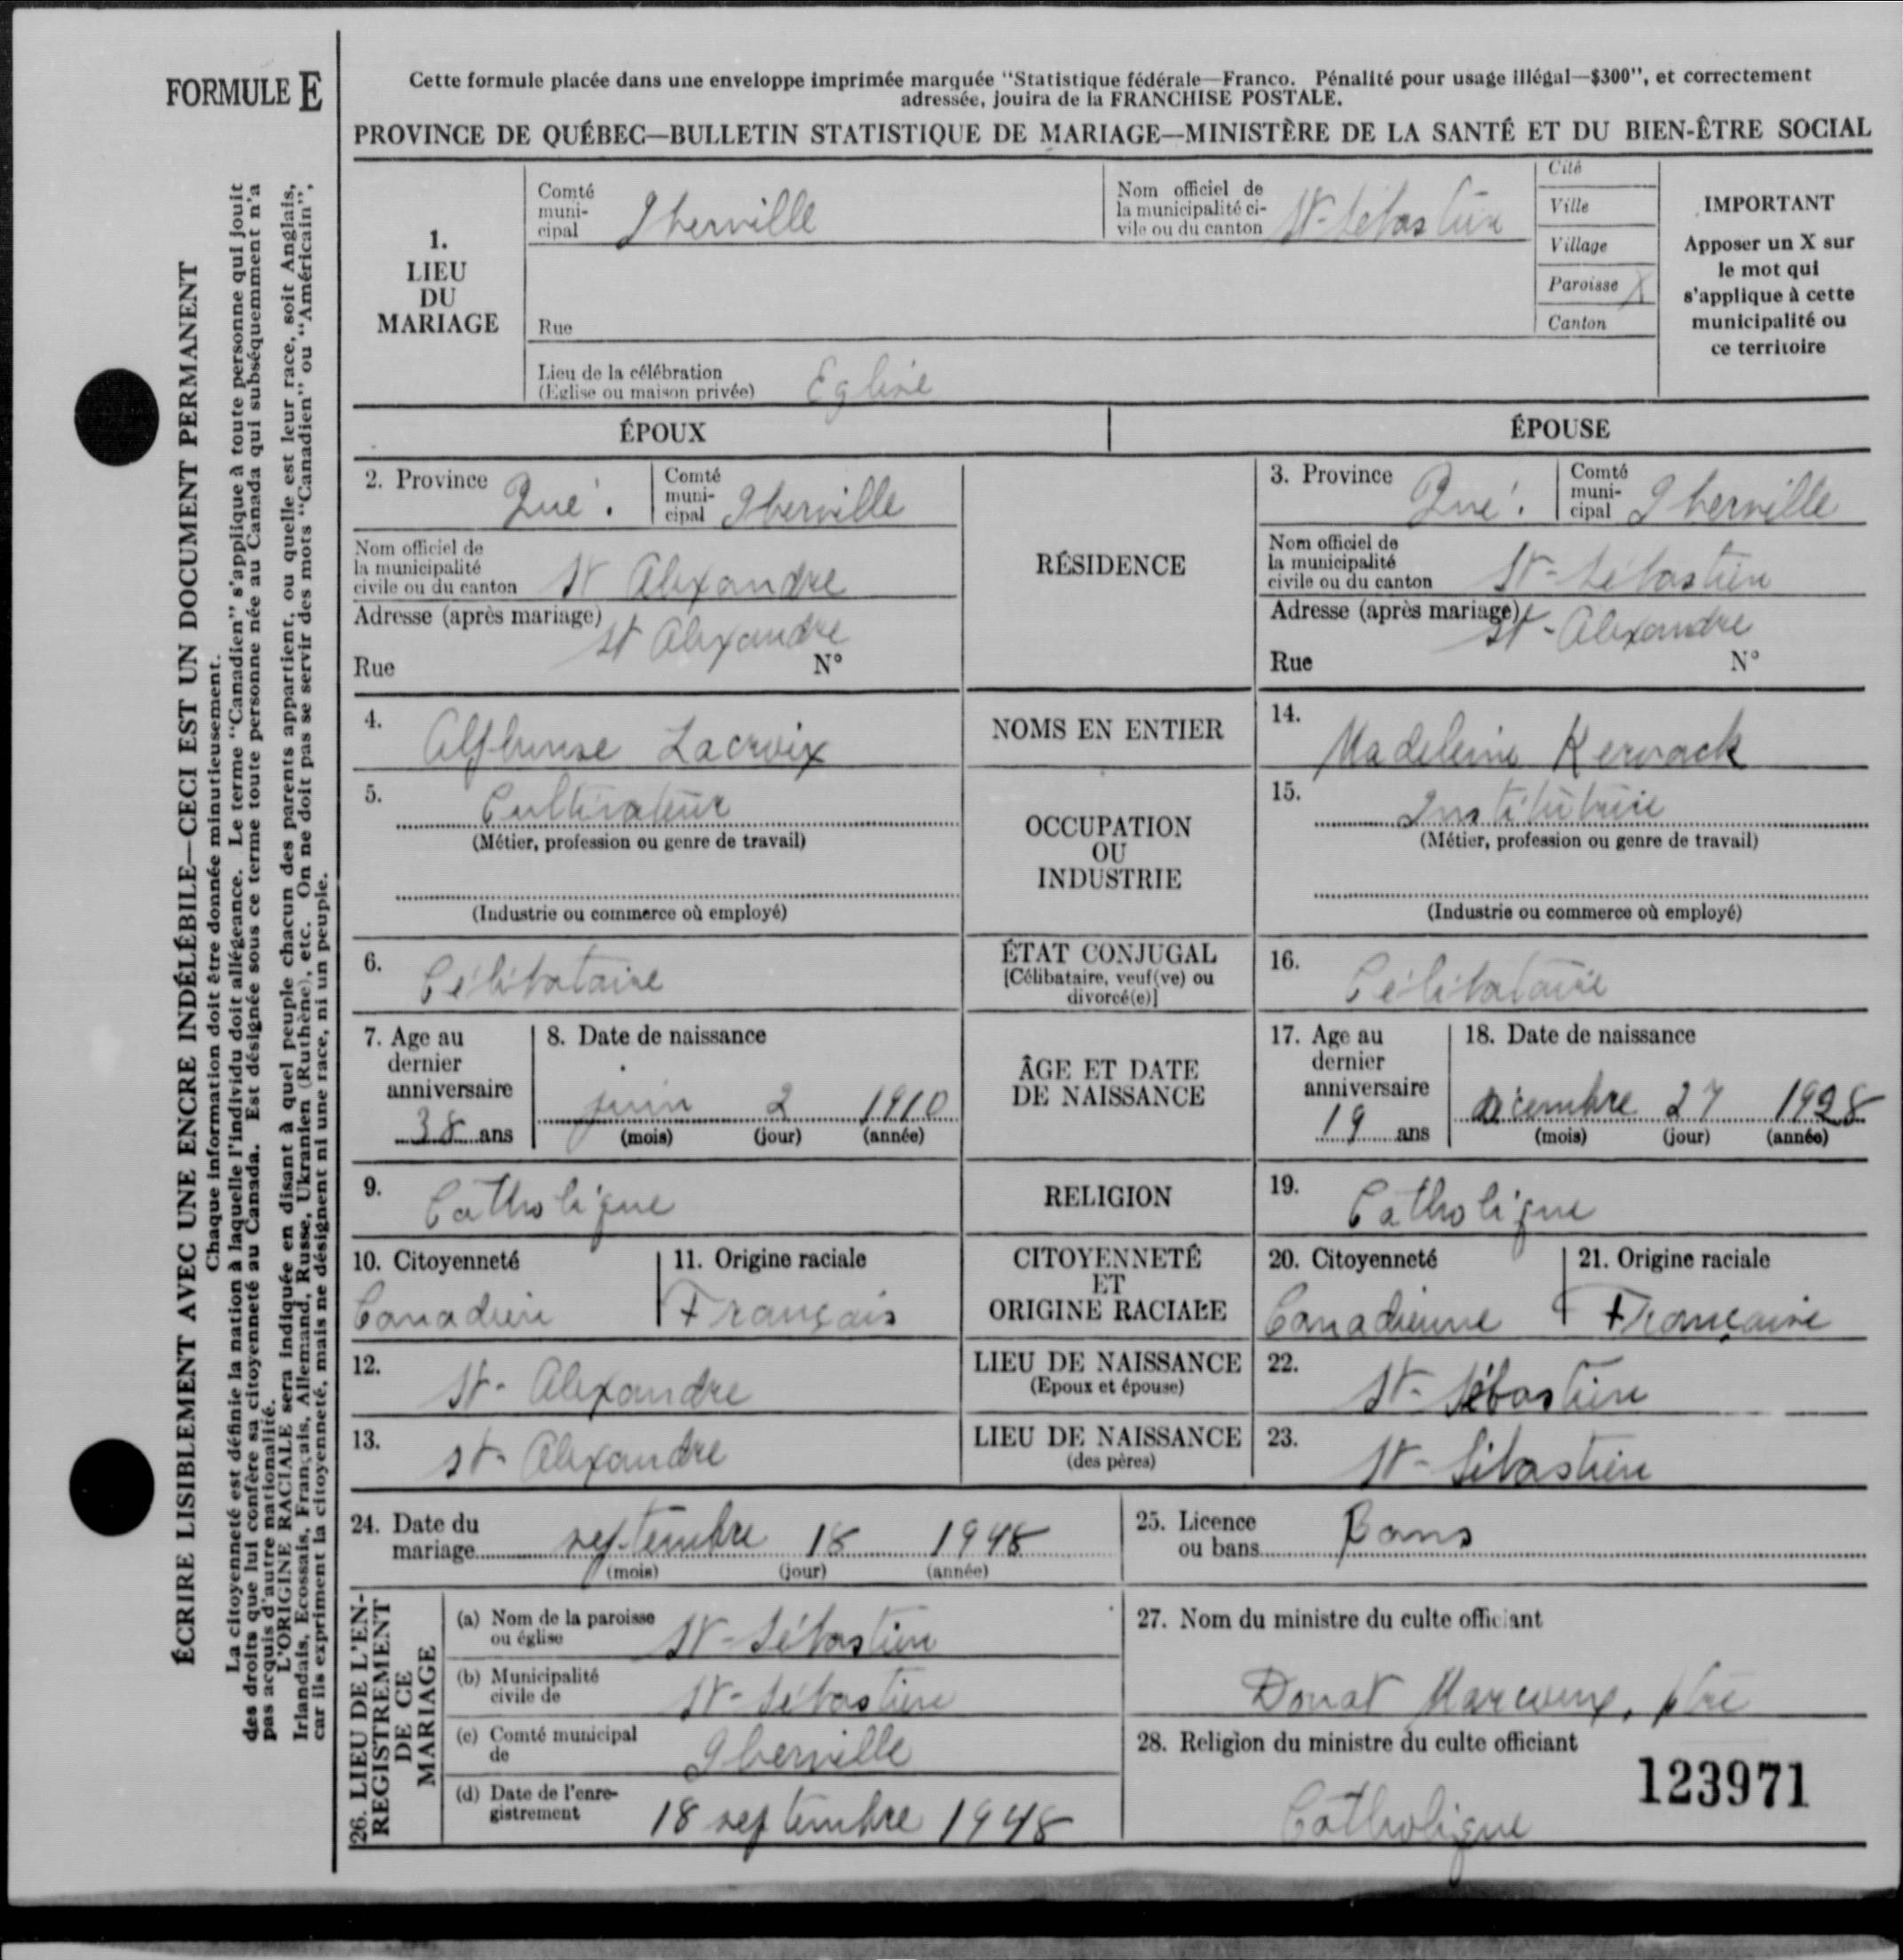 FORMULE E
Cette formule placée dans une enveloppe imprimée marquée "Statistique fédérale—Franco. Pénalité pour usage illégal—$300", et correctement
adressée, jouira de la FRANCHISE POSTALE.
PROVINCE DE QUÉBEC—BULLETIN STATISTIQUE DE MARIAGE—MINISTÈRE DE LA SANTÉ ET DU BIEN-ÊTRE SOCIAL
ÉCRIRE LISIBLEMENT AVEC UNE ENCRE INDÉLÉBILE—CECI EST UN DOCUMENT PERMANENT
Chaque information doit être donnée minutieusement.
La citoyenneté est définie la nation à laquelle l'individu doit allégeance. Le terme "Canadien" s'applique à toute personne qui jouit
des droits que lui confère sa citoyenneté au Canada. Est désignée sous ce terme toute personne née au Canada qui subséquemment n'a
pas acquis d'autre nationalité.
L'ORIGINE RACIALE sera indiquée en disant à quel peuple chacun des parents appartient, ou quelle est leur race, soit Anglais,
Irlandais, Ecossais, Français, Allemand, Russe, Ukranien (Ruthène), etc. On ne doit pas se servir des mots "Canadien" ou "Américain",
car ils expriment la citoyenneté, mais ne désignent ni une race, ni un peuple.
1.
LIEU
DU
MARIAGE
Comté
muni-
cipal Iberville
Nom officiel de
la municipalité ci-
vile ou du canton St-Sébastien
Cité
Ville
Village
Paroisse X
Canton
IMPORTANT
Apposer un X sur
le mot qui
s'applique à cette
municipalité ou
ce territoire
Rue
Lieu de la célébration
(Eglise ou maison privée) Eglise
ÉPOUX
ÉPOUSE
2. Province Qué. Comté
muni-
cipal Iberville
RÉSIDENCE
3. Province Qué. Comté
muni-
cipal Iberville
Nom officiel de
la municipalité
civile ou du canton St Alexandre
Nom officiel de
la municipalité
civile ou du canton St-Sébastien
Adresse (après mariage) St Alexandre
Rue N°
Adresse (après mariage) St-Alexandre
Rue N°
4. Alphonse Lacroix
NOMS EN ENTIER
14. Madeleine Kervack
5. Cultivateur
(Métier, profession ou genre de travail)
(Industrie ou commerce où employé)
OCCUPATION
OU
INDUSTRIE
15. Institutrice
(Métier, profession ou genre de travail)
(Industrie ou commerce où employé)
6. Célibataire
ÉTAT CONJUGAL
[Célibataire, veuf(ve) ou
divorcé(e)]
16. Célibataire
7. Age au
dernier
anniversaire
38 ans
8. Date de naissance
juin 2 1910
(mois) (jour) (année)
ÂGE ET DATE
DE NAISSANCE
17. Age au
dernier
anniversaire
19 ans
18. Date de naissance
décembre 27 1928
(mois) (jour) (année)
9. Catholique
RELIGION
19. Catholique
10. Citoyenneté
Canadien
11. Origine raciale
Français
CITOYENNETÉ
ET
ORIGINE RACIALE
20. Citoyenneté
Canadienne
21. Origine raciale
Française
12. St-Alexandre
LIEU DE NAISSANCE
(Epoux et épouse)
22. St-Sébastien
13. St-Alexandre
LIEU DE NAISSANCE
(des pères)
23. St-Sébastien
24. Date du
mariage septembre 18 1948
(mois) (jour) (année)
25. Licence
ou bans Bans
26. LIEU DE L'EN-
REGISTREMENT
DE CE
MARIAGE
(a) Nom de la paroisse
ou église St-Sébastien
(b) Municipalité
civile de St-Sébastien
(c) Comté municipal
de Iberville
(d) Date de l'enre-
gistrement 18 septembre 1948
27. Nom du ministre du culte officiant
Donat Marcoux, ptre
28. Religion du ministre du culte officiant
Catholique
123971